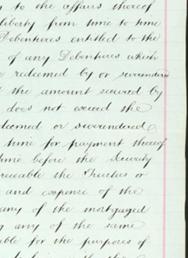 to the affairs thereof
liberty from time to time
Debentures entitled to the
of any Debentures which
redeemed by or surrendered
the amount secured by
does not exceed the
redeemed or surrendered
time for payment thereof
time before the security
the Trustees or
and expense of the
any of the mortgaged
any of the same
for the purposes of